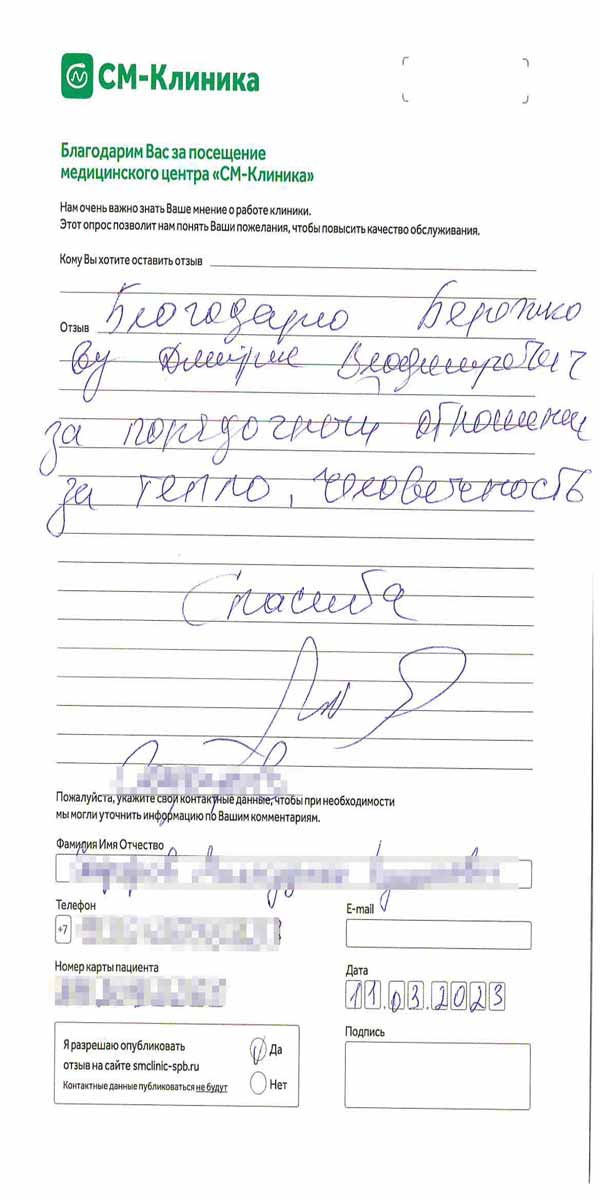 СМ-Клиника
Благодарим Вас за посещение
медицинского центра «СМ-Клиника»
Нам очень важно знать Ваше мнение о работе клиники.
Этот опрос позволит нам понять Ваши пожелания, чтобы повысить качество обслуживания.
Кому Вы хотите оставить отзыв
Отзыв Благодарю
Дмитрие Владимирович
за порядочное отношение
за тепло, человечность
Спасиба
Пожалуйста, укажите свои контактные данные, чтобы при необходимости
мы могли уточнить информацию по Вашим комментариям.
Фамилия Имя Отчество
Телефон
E-mail
+7
Номер карты пациента
Дата
11.03.2023
Я разрешаю опубликовать
отзыв на сайте smclinic-spb.ru
Контактные данные публиковаться не будут
Да
Нет
Подпись